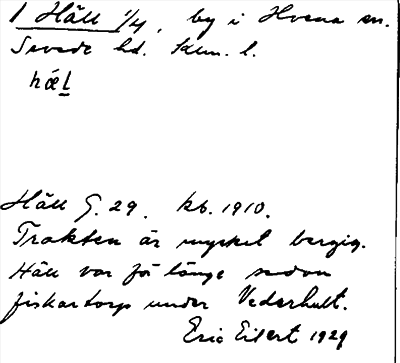 1 Häll 1/4, by i Hvena sn.
Sevede hd. Klm. l.
hǽl
Häll G. 29. kb. 1910.
Trakten är mycket bergig.
Häll var för länge sedan
fiskartorp under Vederhult.
Eric Eilert 1929